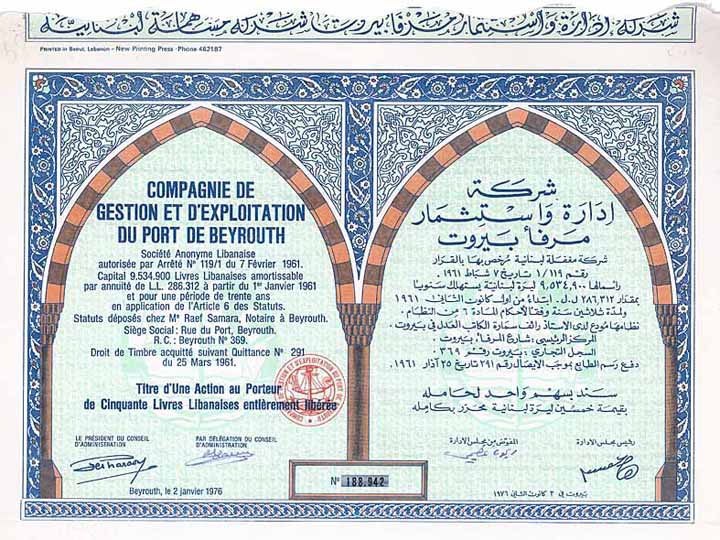 شركة إدارة واستثمار مرفأ بيروت شركة مساهمة لبنانية
PRINTED IN BEIRUT, LEBANON - NEW PRINTING PRESS - PHONE 462187
COMPAGNIE DE
GESTION ET D'EXPLOITATION
DU PORT DE BEYROUTH
Société Anonyme Libanaise
autorisée par Arrêté N° 119/1 du 7 Février 1961.
Capital 9.534.900 Livres Libanaises amortissable
par annuité de L.L. 286.312 à partir du 1er Janvier 1961
et pour une période de trente ans
en application de l'Article 6 des Statuts.
Statuts déposés chez Me Raef Samara, Notaire à Beyrouth.
Siège Social : Rue du Port, Beyrouth.
R.C. : Beyrouth N° 369.
Droit de Timbre acquitté suivant Quittance N° 291
du 25 Mars 1961.
Titre d'Une Action au Porteur
de Cinquante Livres Libanaises entièrement libérée
LE PRÉSIDENT DU CONSEIL
D'ADMINISTRATION
PAR DÉLÉGATION DU CONSEIL
D'ADMINISTRATION
Beyrouth, le 2 janvier 1976
شركة
إدارة واستثمار
مرفأ بيروت
شركة مغفلة لبنانية مرخص بها بالقرار
رقم ١/١١٩ تاريخ ٧ شباط ١٩٦١.
رأسمالها ٩,٥٣٤,٩٠٠ ليرة لبنانية يستهلك سنويا
بمقدار ٢٨٦,٣١٢ ل.ل. ابتداء من اول كانون الثاني ١٩٦١
ولمدة ثلاثين سنة وفقا لأحكام المادة ٦ من النظام
نظامها مودع لدى الاستاذ رائف سمارة الكاتب العدل في بيروت.
المركز الرئيسي: شارع المرفأ بيروت.
السجل التجاري: بيروت رقم ٣٦٩
دفع رسم الطابع بموجب الايصال رقم ٢٩١ تاريخ ٢٥ آذار ١٩٦١.
سند بسهم واحد لحامله
بقيمة خمسين ليرة لبنانية محرر بكامله
رئيس مجلس الادارة
المفوض من مجلس الادارة
بيروت في ٢ كانون الثاني ١٩٧٦
N° 188.942